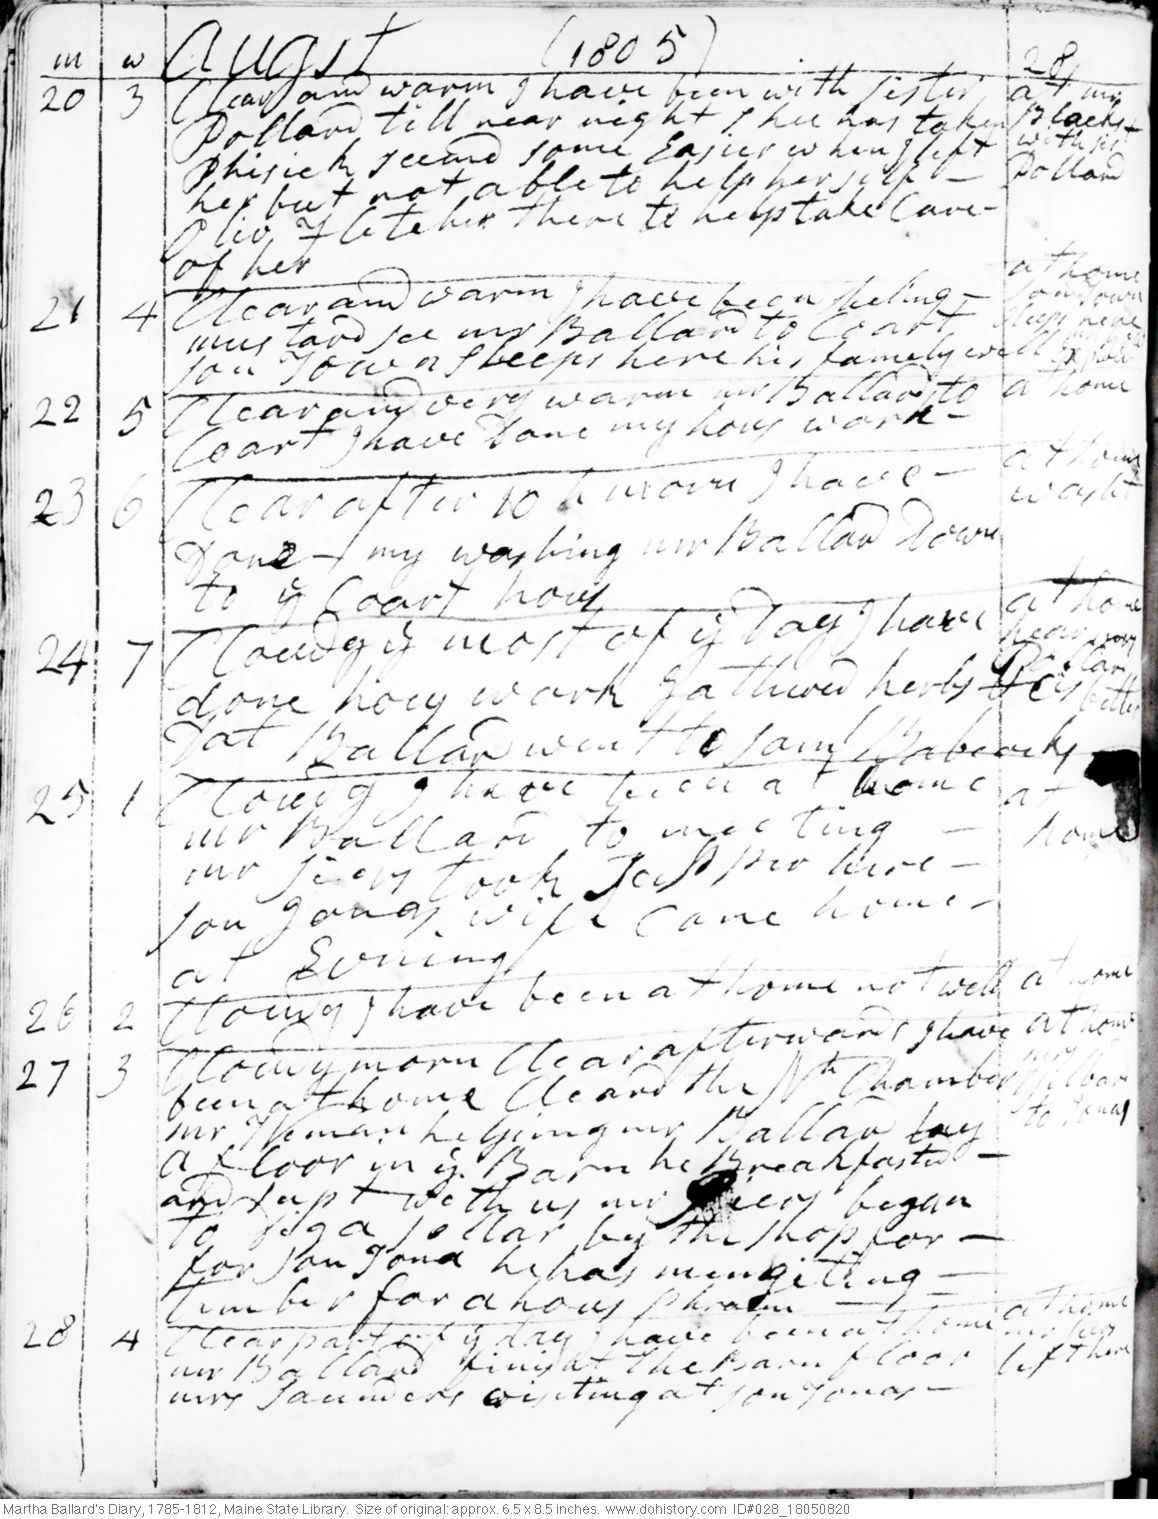 m w August (1805) 28
20 3 Clear and warm I have been with sister at mr
Pollard till near night shee has taken Blacks
Phisick seemd some Easier when I left with sist
her but not able to help her self – Pollard
Oliv Fletcher there to help take Care –
of her
21 4 Clear and warm I have been at home
mustard see mr Ballard to Coart son Town
son Town sleeps here his famely well sleeps here
22 5 Clear and very warm mr Ballard to at home
Coart I have Done my hous work –
23 6 Clear after 10 h morn I have – at home
Done – my washing mr Ballard Down washt
to ÿ Coart hous
24 7 Cloudy ÿ most of ÿ Day I have at home
done hous work gathered herbs hear
Dat Ballard went to Saml Babcocks Pollard is better
25 1 Cloudy I have been at home at
mr Ballard to meeting – home
mr took Supper here –
son Jonas wife Came home –
at Evning
26 2 Cloudy I have been at home not well at home
27 3 Cloudy morn Clear afterwards I have at home
been at home Cleard the Nth Chamber
mr helping mr Ballard lay to Jonas
a floor in ÿ Barn he Breakfasted –
and supt with us mr began
to Dig a sellar by the shop for –
for son Jona he has men gitting –
timber for a hous phraim –
28 4 Clear part of ÿ day I have been at home at home
mr Ballard finisht the Barn floor
mrs Saunders visiting at son Jonas – left here
Martha Ballard's Diary, 1785-1812, Maine State Library. Size of original: approx. 6.5 x 8.5 inches. www.dohistory.com ID#028_18050820